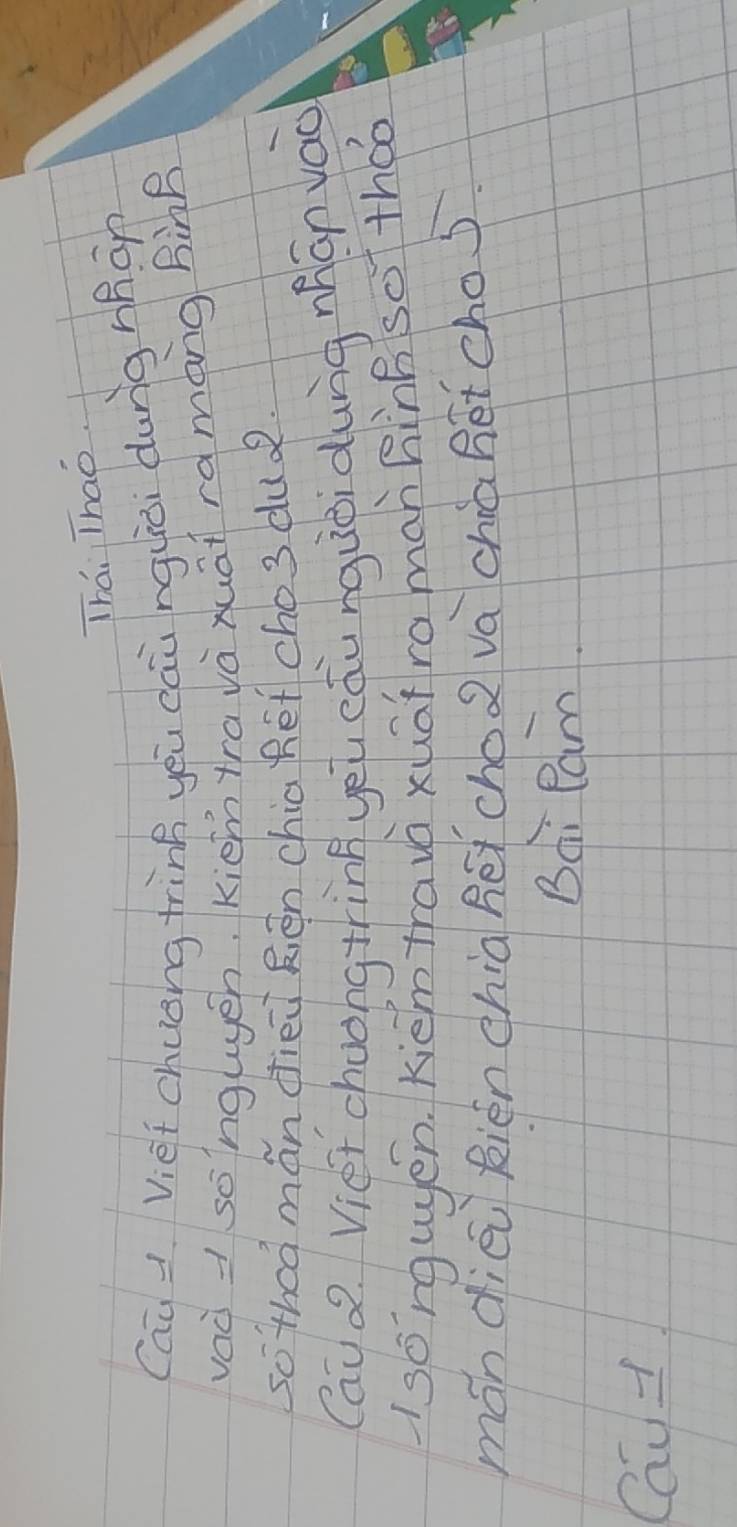 Thái Thảo.
Câu 1. Viết chương trình yêu cầu người dùng nhập
vào 1 số nguyên. Kiểm tra và xuất ra màng hình
số thoả mãn điều kiện chia hết cho 3 dư 2.
Câu 2. Viết chương trình yêu cầu người dùng nhập vào
1 số nguyên. Kiểm tra và xuất ra màn hình số thỏa
mãn điều kiện chia hết cho 2 và chia hết cho 5.
Bài làm.
Câu 1.